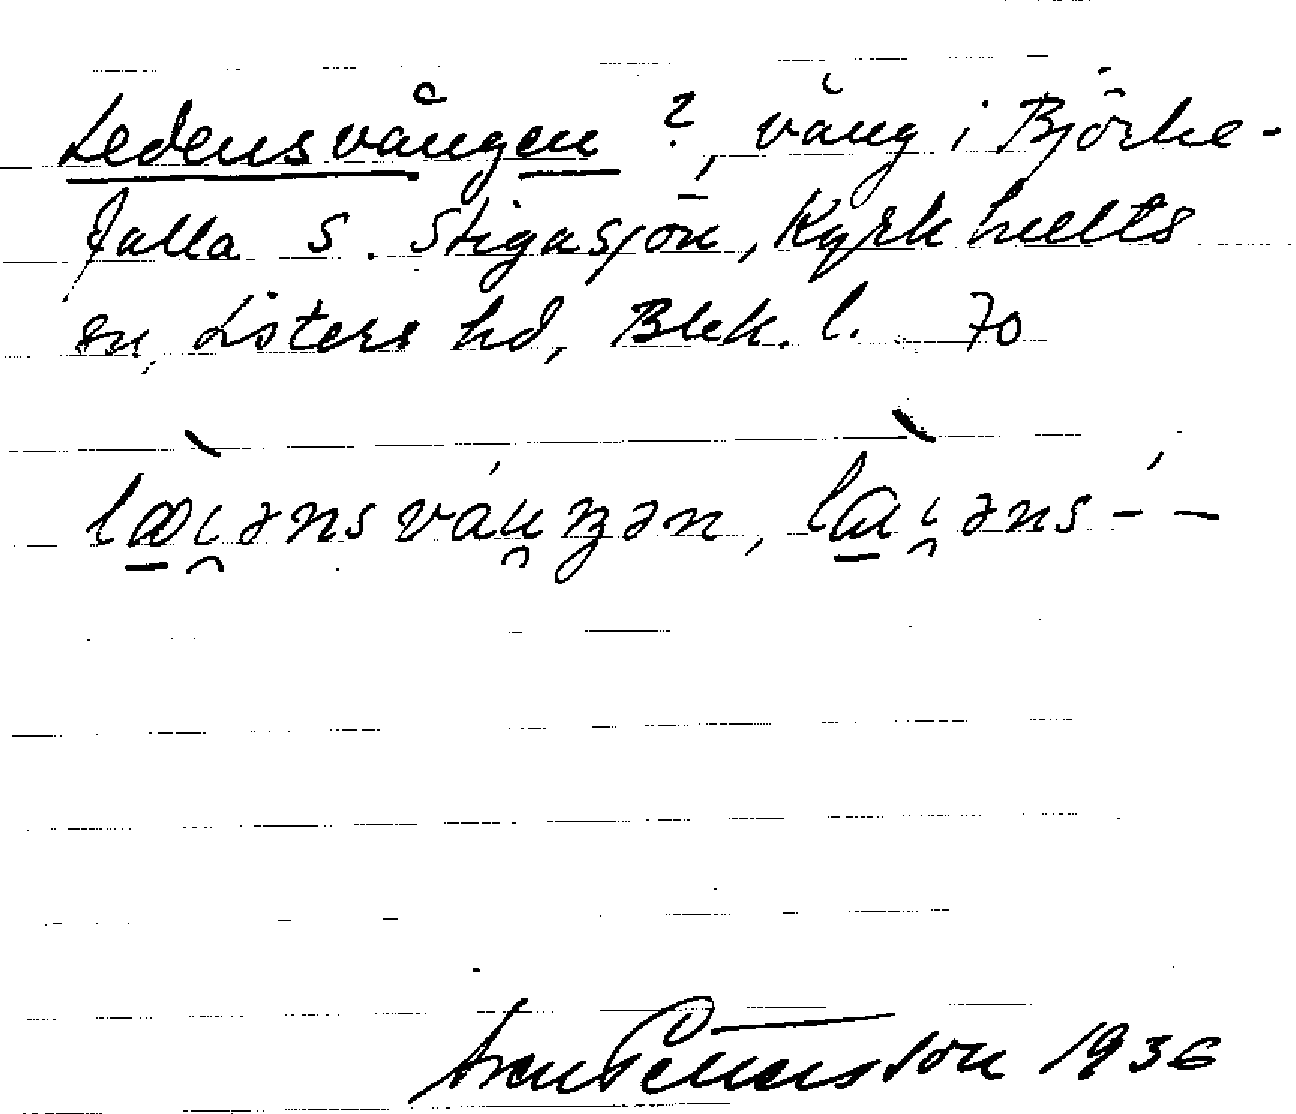 Ledensvången ?, vång i Björke-
falla s. Stigasjön, Kyrkhults
sn, Listers hd, Blek. l. 70
læi̯ənsváu̯ŋən, lai̯əns- -
Sven Pettersson 1936